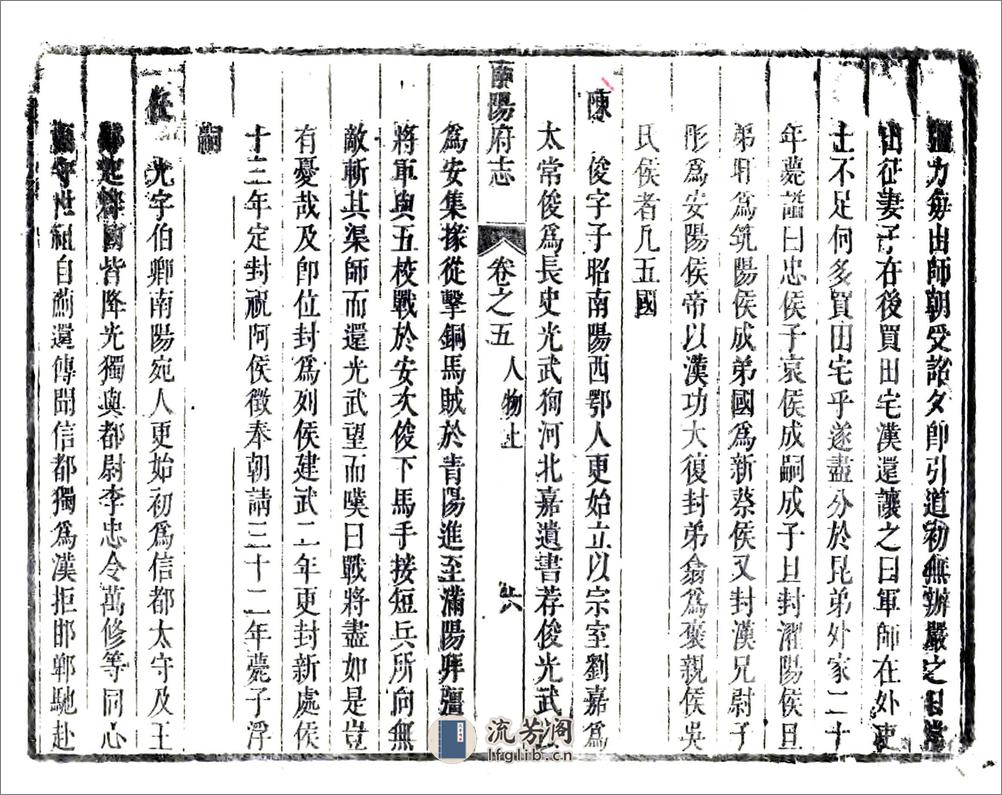 力每出師朝受詔夕卽引道初無辦嚴之日
出征妻子在後買田宅漢還讓之曰軍師在外吏
士不足何多買田宅乎遂盡分於昆弟外家二十
年薨諡曰忠侯子哀侯成嗣成子旦封濯陽侯旦
弟盱爲筑陽侯成弟國爲新蔡侯又封漢兄尉子
彤爲安陽侯帝以漢功大復封弟翕爲褒親侯吳
氏侯者凡五國
陳俊字子昭南陽西鄂人更始立以宗室劉嘉爲
太常俊爲長史光武狥河北嘉遺書荐俊光武
南陽府志 卷之五 人物上 六
爲安集掾從擊銅馬賊於青陽進至滿陽拜彊
將軍與五校戰於安次俊下馬手接短兵所向無
敵斬其渠師而還光武望而嘆曰戰將盡如是豈
有憂哉及卽位封爲列侯建武二年更封新處侯
十三年定封祝阿侯徵奉朝請三十二年薨子浮
嗣
光字伯卿南陽宛人更始初爲信都太守及王
郎起郡國皆降光獨與都尉李忠令萬修等同心
守世祖自薊還傳聞信都獨爲漢拒邯鄲馳赴
流芳阁
lfglib.cn